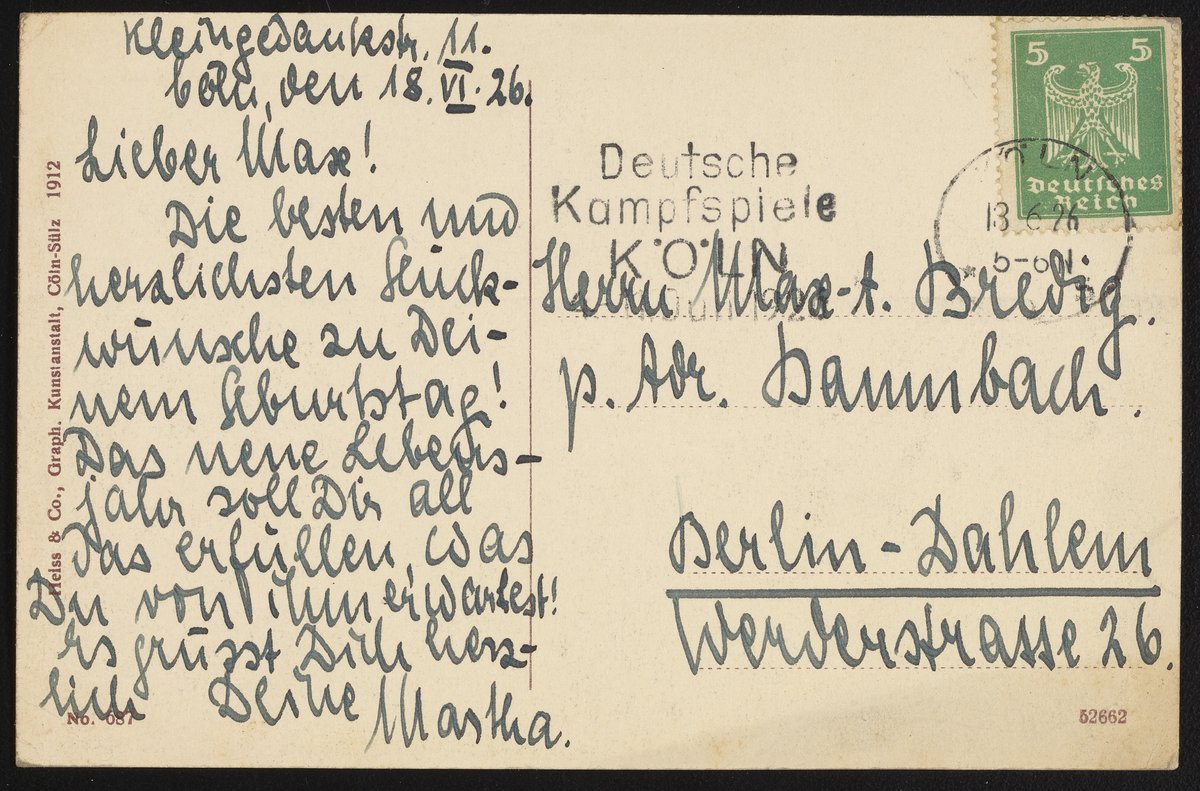 Kleingedankstr. 11.
Cöln, den 18. VI. 26.
Lieber Max!
Die besten und
herzlichsten Glück-
wünsche zu Dei-
nem Geburtstag!
Das neue Lebens-
jahr soll Dir all
das erfüllen, was
Du von ihm erwartest!
Es grüsst Dich herz-
lich Deine Martha.
Heiss & Co., Graph. Kunstanstalt, Cöln-Sülz 1912
No. 687
Deutsche
Kampfspiele
KÖLN
Juli 1926
5 5
Deutsches
Reich
KÖLN
18 6 26
5-6 N.
Herrn Max-A. Bredig.
p. Adr. Dannbach.
Berlin-Dahlem
Werderstrasse 26.
52662